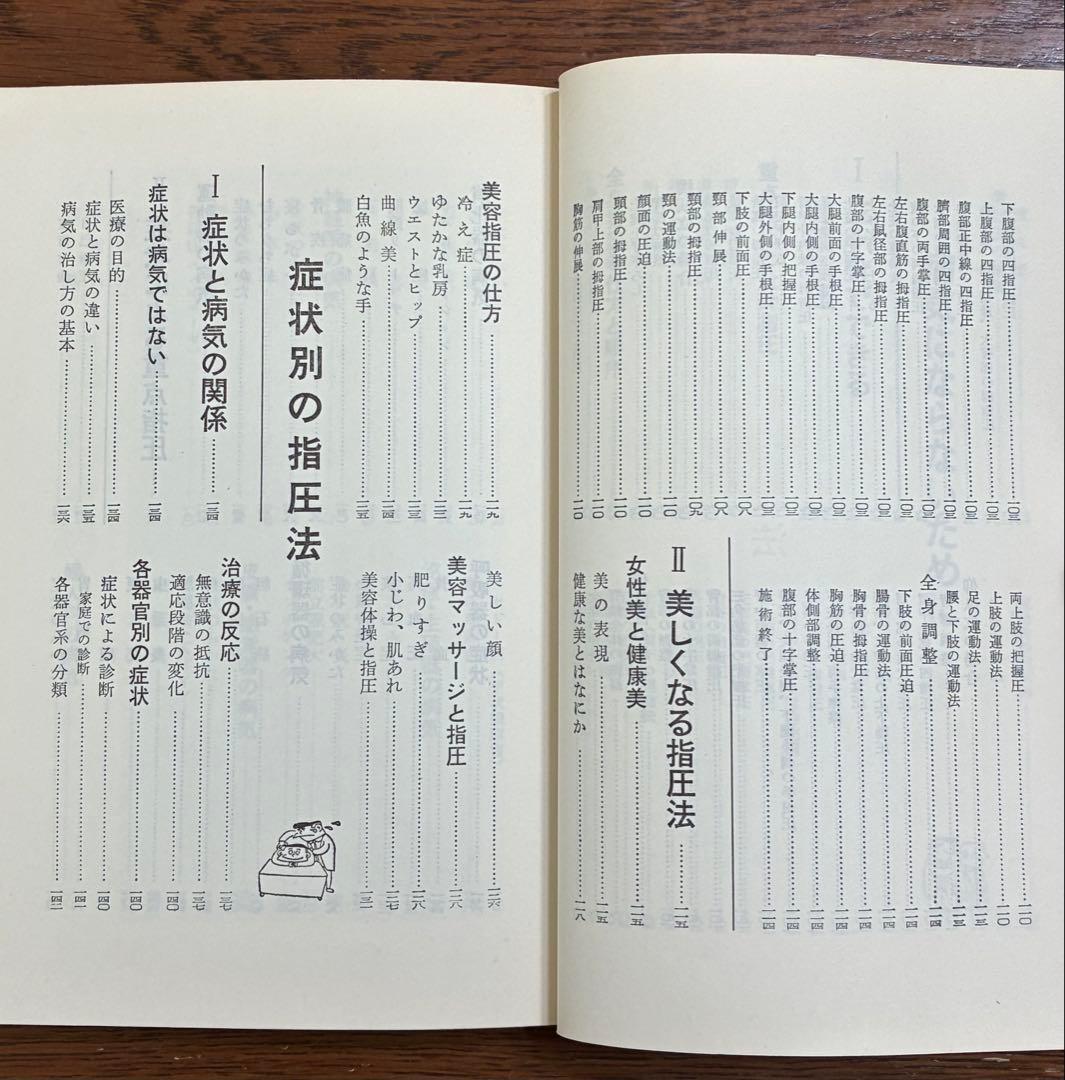 下腹部の四指圧……一〇三
上腹部の四指圧……一〇三
腹部正中線の四指圧……一〇三
臍部周囲の四指圧……一〇三
腹部の両手掌圧……一〇三
左右腹直筋の拇指圧……一〇三
左右鼠径部の拇指圧……一〇三
腹部の十字掌圧……一〇三
大腿前面の手根圧……一〇三
大腿内側の手根圧……一〇三
下腿内側の把握圧……一〇三
大腿外側の手根圧……一〇三
下肢の前面圧……一〇八
頸部伸展……一〇八
頸部の拇指圧……一〇九
頸の運動法……一一〇
顔面の圧迫……一一〇
頭部の拇指圧……一一〇
肩甲上部の拇指圧……一一〇
胸筋の伸展……一一〇
両上肢の把握圧……一一〇
上肢の運動法……一一〇
足の運動法……一一三
腰と下肢の運動法……一一三
全身調整……一一四
下肢の前面圧迫……一一四
腸骨の運動法……一一四
胸骨の拇指圧……一一四
胸筋の圧迫……一一四
体側部調整……一一四
腹部の十字掌圧……一一四
施術終了……一一四
Ⅱ 美しくなる指圧法……一一五
女性美と健康美……一一五
美の表現……一一五
健康な美とはなにか……一一八
美容指圧の仕方……一一九
冷え症……一一九
ゆたかな乳房……一二二
ウエストとヒップ……一二三
曲線美……一二四
白魚のような手……一二五
美しい顔……一二六
美容マッサージと指圧……一二六
肥りすぎ……一二六
小じわ、肌あれ……一二七
美容体操と指圧……一三一
症状別の指圧法
Ⅰ 症状と病気の関係……一三四
症状は病気ではない……一三四
医療の目的……一三四
症状と病気の違い……一三五
病気の治し方の基本……一三六
治療の反応……一三七
無意識の抵抗……一三七
適応段階の変化……一四〇
各器官別の症状……一四〇
症状による診断……一四〇
家庭での診断……一四一
各器官系の分類……一四二